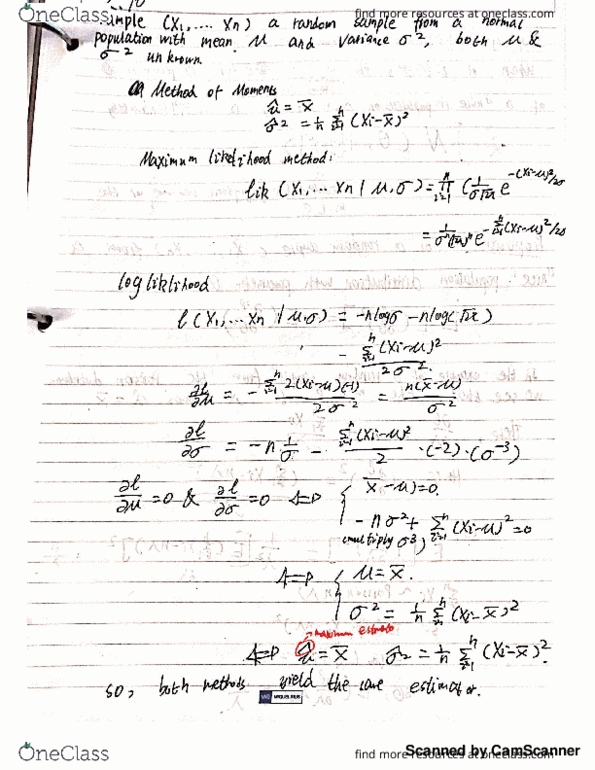 OneClass
find more resources at oneclass.com
Example (X1,... Xn) a random sample from a normal
population with mean μ and variance σ², both μ &
σ² unknown
Method of Moments
μ̂ = X̄
σ̂² = 1/n Σⁿᵢ₌₁ (Xi-X̄)²
Maximum likelihood method:
lik (X1,... Xn | μ, σ) = Πⁿᵢ₌₁ (1/(σ√2π) e^-(Xi-μ)²/2σ
= 1/(σⁿ(√2π)ⁿ) e^-Σⁿᵢ₌₁(Xi-μ)²/2σ
log liklihood
l (X1,... Xn | μ, σ) = -nlogσ - nlog(√2π)
- Σⁿᵢ₌₁ (Xi-μ)² / 2σ²
∂l/∂μ = - Σⁿᵢ₌₁ 2(Xi-μ)(-1) / 2σ² = n(X̄-μ) / σ²
∂l/∂σ = -n 1/σ - Σⁿᵢ₌₁ (Xi-μ)² / 2 · (-2) · (σ⁻³)
∂l/∂μ = 0 & ∂l/∂σ = 0 <=> { X̄-μ)=0.
-nσ² + Σⁿᵢ₌₁ (Xi-μ)² = 0
(multiply σ³)
<=> { μ = X̄.
σ² = 1/n Σⁿᵢ₌₁ (Xi-X̄)²
maximum
<=> μ̂ = X̄ σ̂² = 1/n Σⁿᵢ₌₁ (Xi-X̄)².
so, both methods yield the same estimator.
Scanned by CamScanner
OneClass
find more resources at oneclass.com